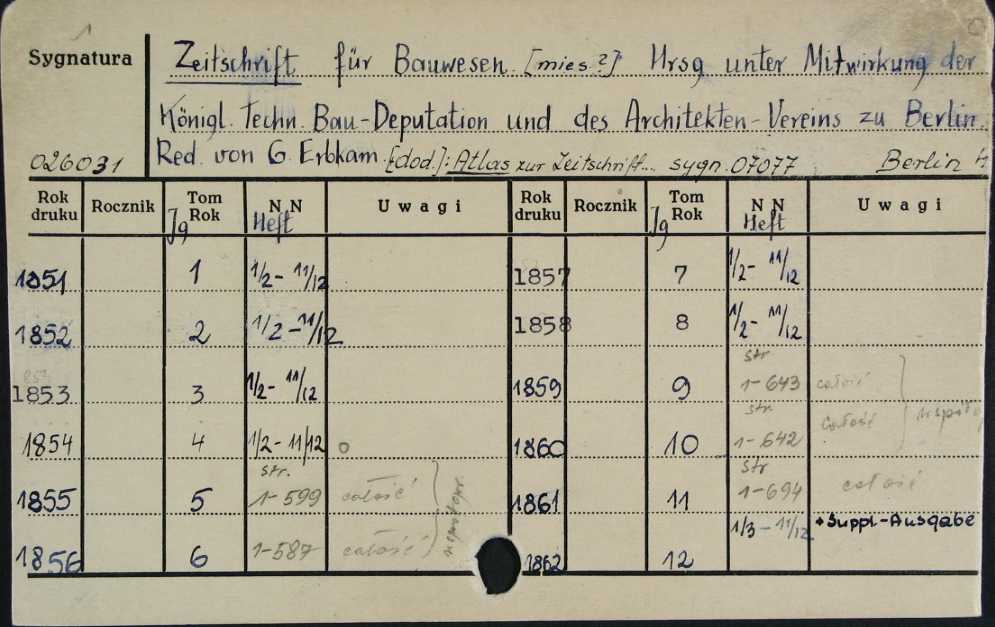 1
Sygnatura
Zeitschrift für Bauwesen. [mies?] Hrsg unter Mitwirkung der
Königl. Techn. Bau-Deputation und des Architekten-Vereins zu Berlin.
026031 Red. von G. Erbkam. [dod.]: Atlas zur Zeitschrift... sygn. 07077 Berlin 4
Rok druku Rocznik Tom Rok Jg N N Heft Uwagi Rok druku Rocznik Tom Rok Jg N N Heft Uwagi
1851 1 1/2 - 11/12 1857 7 1/2 - 11/12
1852 2 1/2 - 11/12 1858 8 1/2 - 11/12
1853 3 1/2 - 11/12 1859 9 str 1-643 całość
1854 4 1/2 - 11/12 o 1860 10 str 1-642 całość
1855 5 str. 1-599 całość 1861 11 str 1-694 całość
1856 6 1-587 całość 1862 12 1/3 - 11/12 + Suppl-Ausgabe